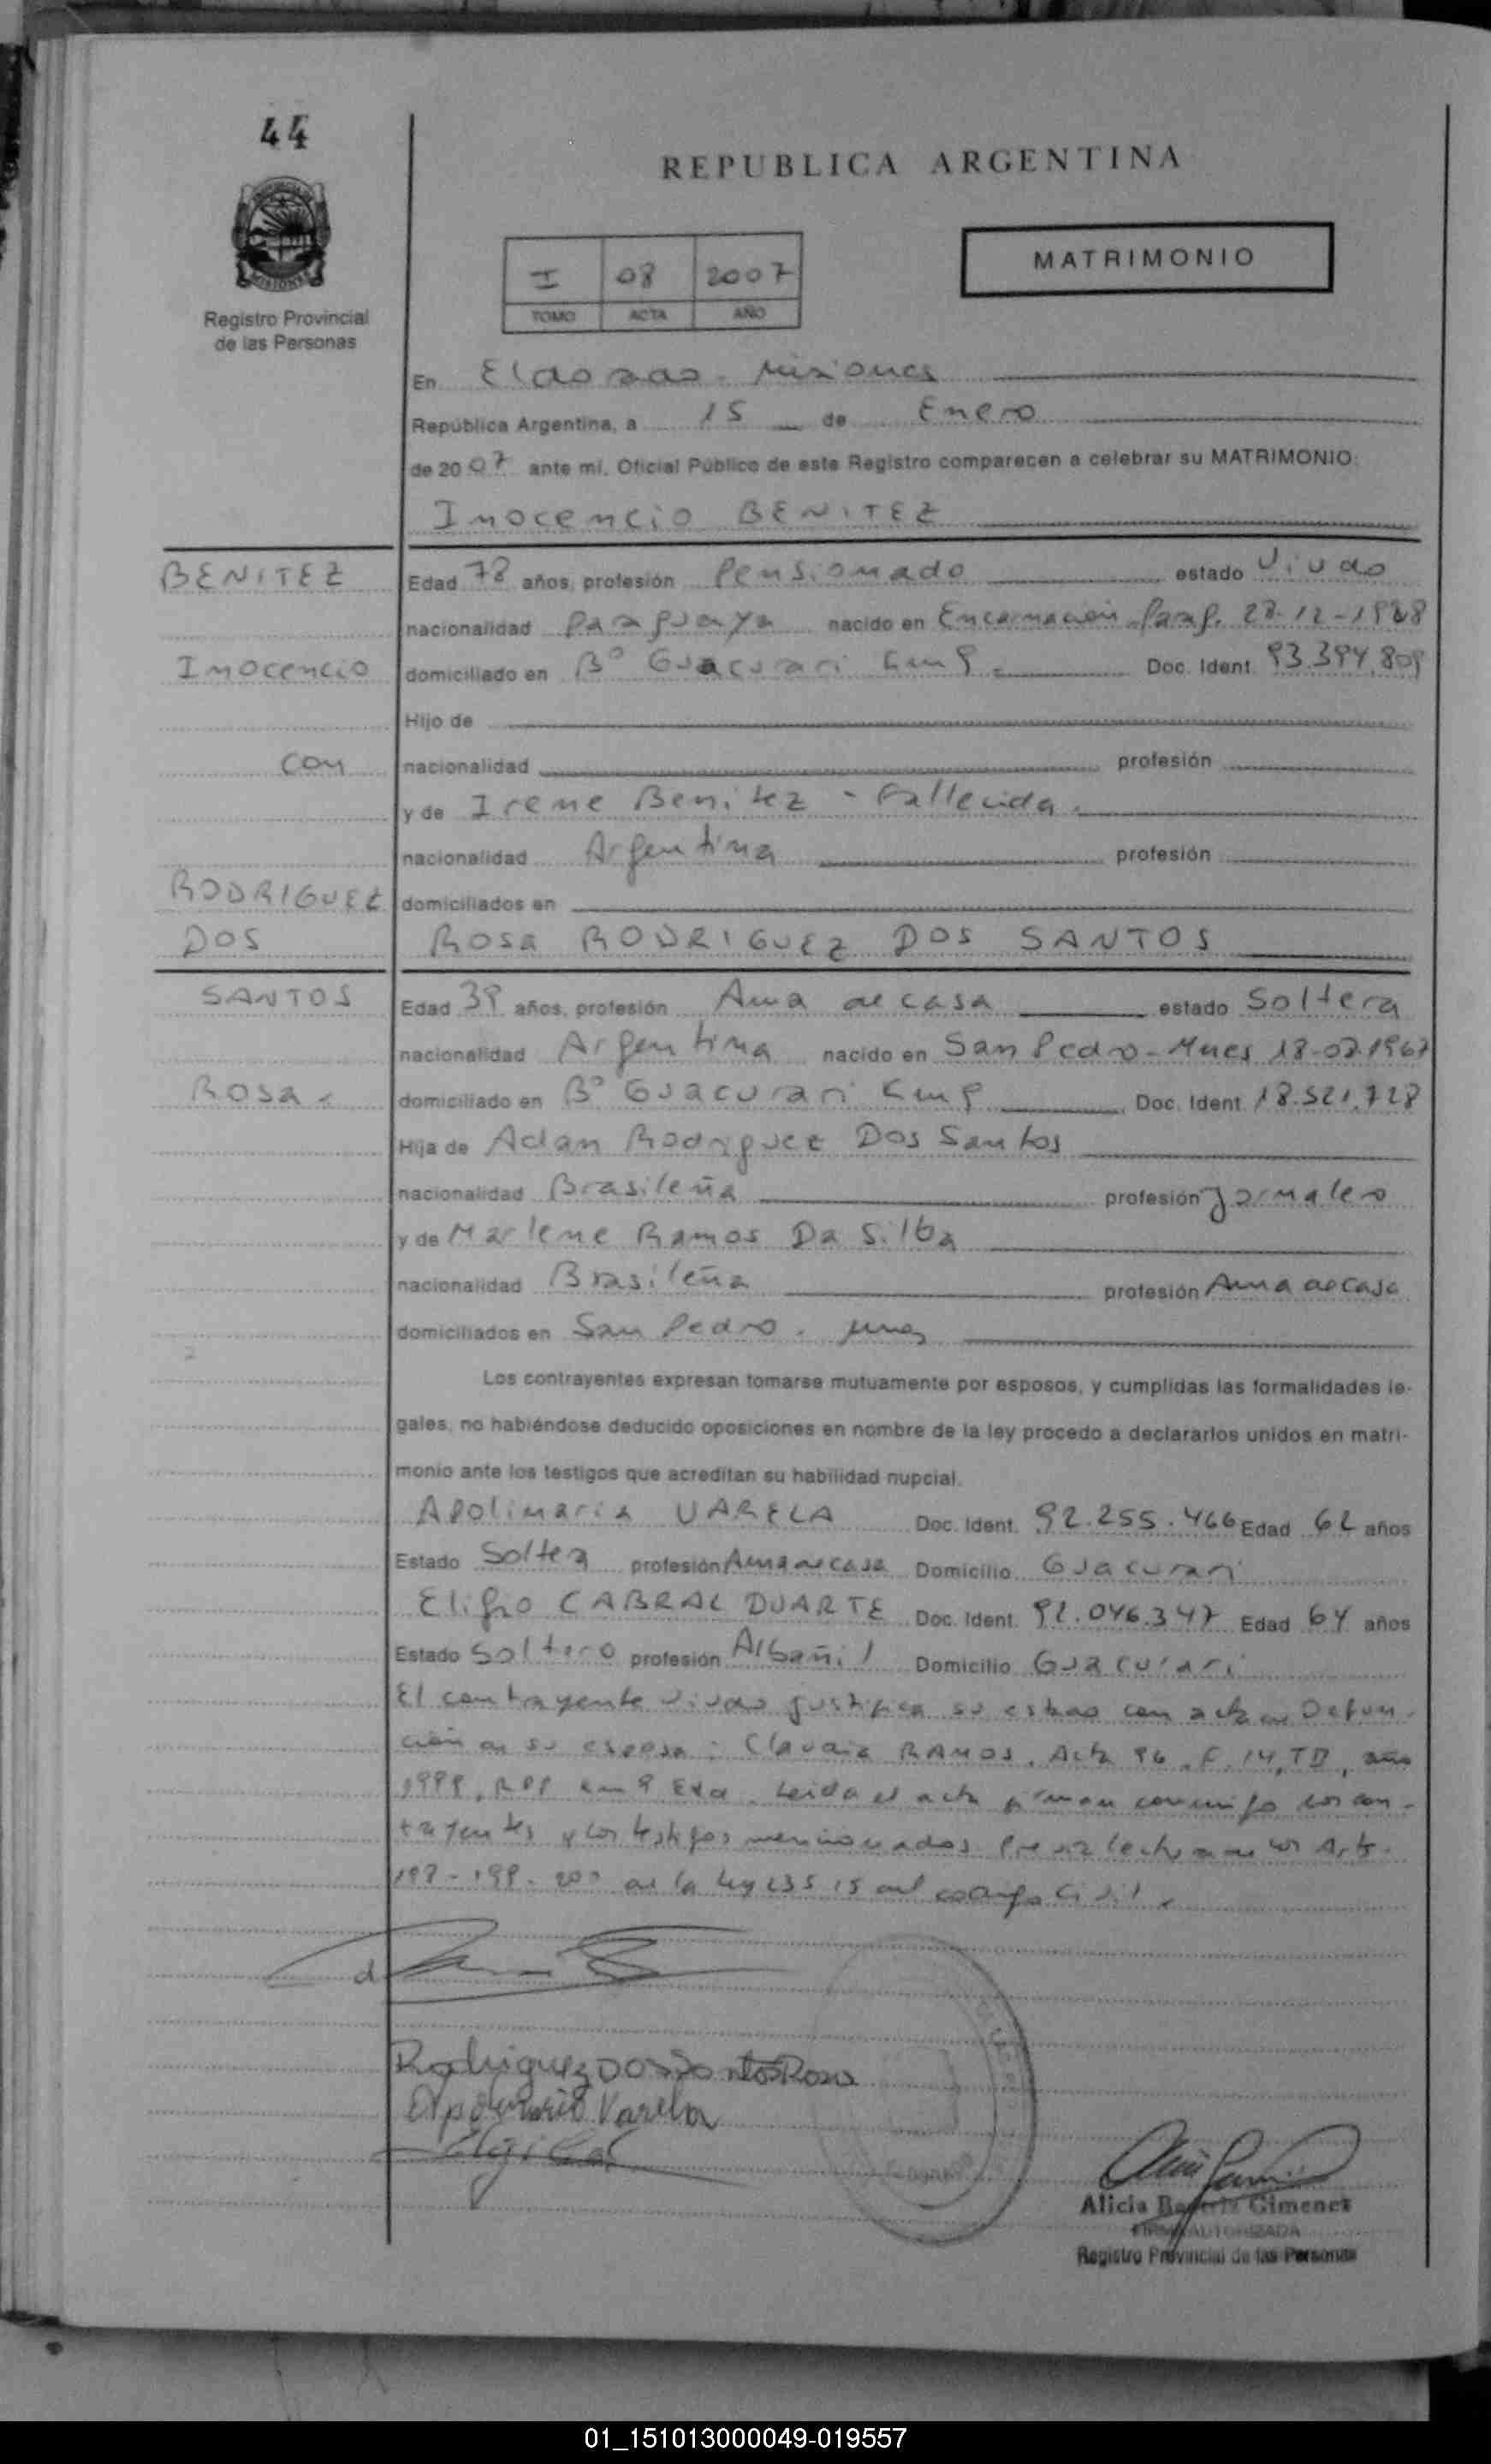 44
REPUBLICA ARGENTINA
I 08 2007
TOMO ACTA AÑO
MATRIMONIO
Registro Provincial
de las Personas
En Eldorado - Misiones
República Argentina, a 15 de Enero
de 2007 ante mí, Oficial Público de este Registro comparecen a celebrar su MATRIMONIO:
Inocencio BENITEZ
BENITEZ
Inocencio
con
RODRIGUEZ
DOS
SANTOS
Rosa
Edad 78 años, profesión Pensionado estado Viudo
nacionalidad Paraguaya nacido en Encarnación Parag. 28-12-1928
domiciliado en Bº Guacurari Km 9 Doc. Ident. 93.394.809
Hijo de
nacionalidad profesión
y de Irene Benitez - Fallecida
nacionalidad Argentina profesión
domiciliados en
Rosa RODRIGUEZ DOS SANTOS
Edad 39 años, profesión Ama de casa estado Soltera
nacionalidad Argentina nacido en San Pedro - Mnes 18-07-1967
domiciliado en Bº Guacurari Km 9 Doc. Ident. 18.521.728
Hija de Adan Rodriguez Dos Santos
nacionalidad Brasileña profesión Jornalero
y de Marlene Ramos Da Silba
nacionalidad Brasileña profesión Ama de casa
domiciliados en San Pedro - Mnes
Los contrayentes expresan tomarse mutuamente por esposos, y cumplidas las formalidades le-
gales, no habiéndose deducido oposiciones en nombre de la ley procedo a declararlos unidos en matri-
monio ante los testigos que acreditan su habilidad nupcial.
Apolinaria VARELA Doc. Ident. 92.255.466 Edad 62 años
Estado Soltera profesión Ama de casa Domicilio Guacurari
Eligio CABRAL DUARTE Doc. Ident. 92.046.347 Edad 64 años
Estado Soltero profesión Albañil Domicilio Guacurari
El contrayente viudo justifica su estado con acta de Defun-
ción de su esposa: Claudia RAMOS, Acta 96, F 14, T II, año
RPP Km 9 Eldo. Leida el acta firman conmigo los con-
trayentes y los testigos mencionados previa lectura de los Arts.
198-199-200 de la Ley 23515 del codigo Civil.
Rodriguez Dos Santos Rosa
Apolinaria Varela
Alicia Beatriz Gimenez
FIRMA AUTORIZADA
Registro Provincial de las Personas
01_151013000049-019557